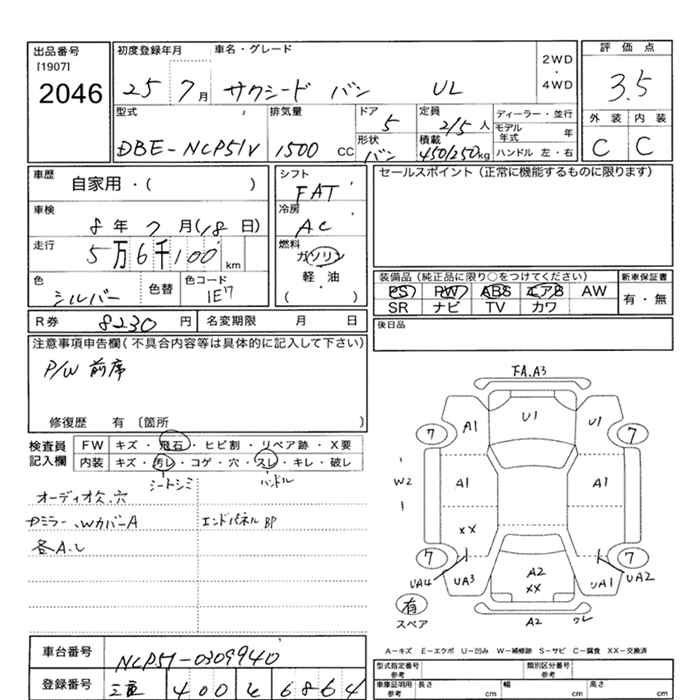 出品番号
[1907]
2046
初度登録年月
25 7月
車名・グレード
サクシード バン UL
2WD
・
4WD
評価点
3.5
外装 内装
C C
型式
DBE-NCP51V
排気量
1500 CC
ドア
5
形状
バン
定員
2/5人
積載
450/250kg
ディーラー・並行
モデル年式 年
ハンドル 左・右
車歴
自家用・( )
車検
8年7月(18日)
走行
5万6千100 km
色
シルバー
色替
色コード
1E7
シフト
FAT
冷房
AC
燃料
ガソリン
・
軽油
・
( )
セールスポイント(正常に機能するものに限ります)
装備品(純正品に限り○をつけてください)
PS PW ABS エアB AW
SR ナビ TV カワ
新車保証書
有・無
R券 8230円
名変期限 月 日
後日品
注意事項申告欄(不具合内容等は具体的に記入して下さい)
P/W 前席
修復歴 有〔箇所
検査員
記入欄
FW キズ・飛石・ヒビ割・リペア跡・X要
内装 キズ・汚レ・コゲ・穴・スレ・キレ・破レ
シートシミ ハンドル
オーディオ欠、穴
カミラー、WカバーA
各A、レ
エンドパネル BP
FA、A3
7
A1
U1
U1
7
W2
A1
A1
XX
7
UA4
UA3
A2
XX
UA1
UA2
7
有
スペア
A2
ワレ
A-キズ E-エクボ U-凹み W-補修跡 S-サビ C-腐食 XX-交換済
車台番号
NCP51-0309940
登録番号
三重 400 そ 6864
型式指定番号
参考
類別区分番号
参考
車庫証明用
参考
長さ cm
幅 cm
高さ cm